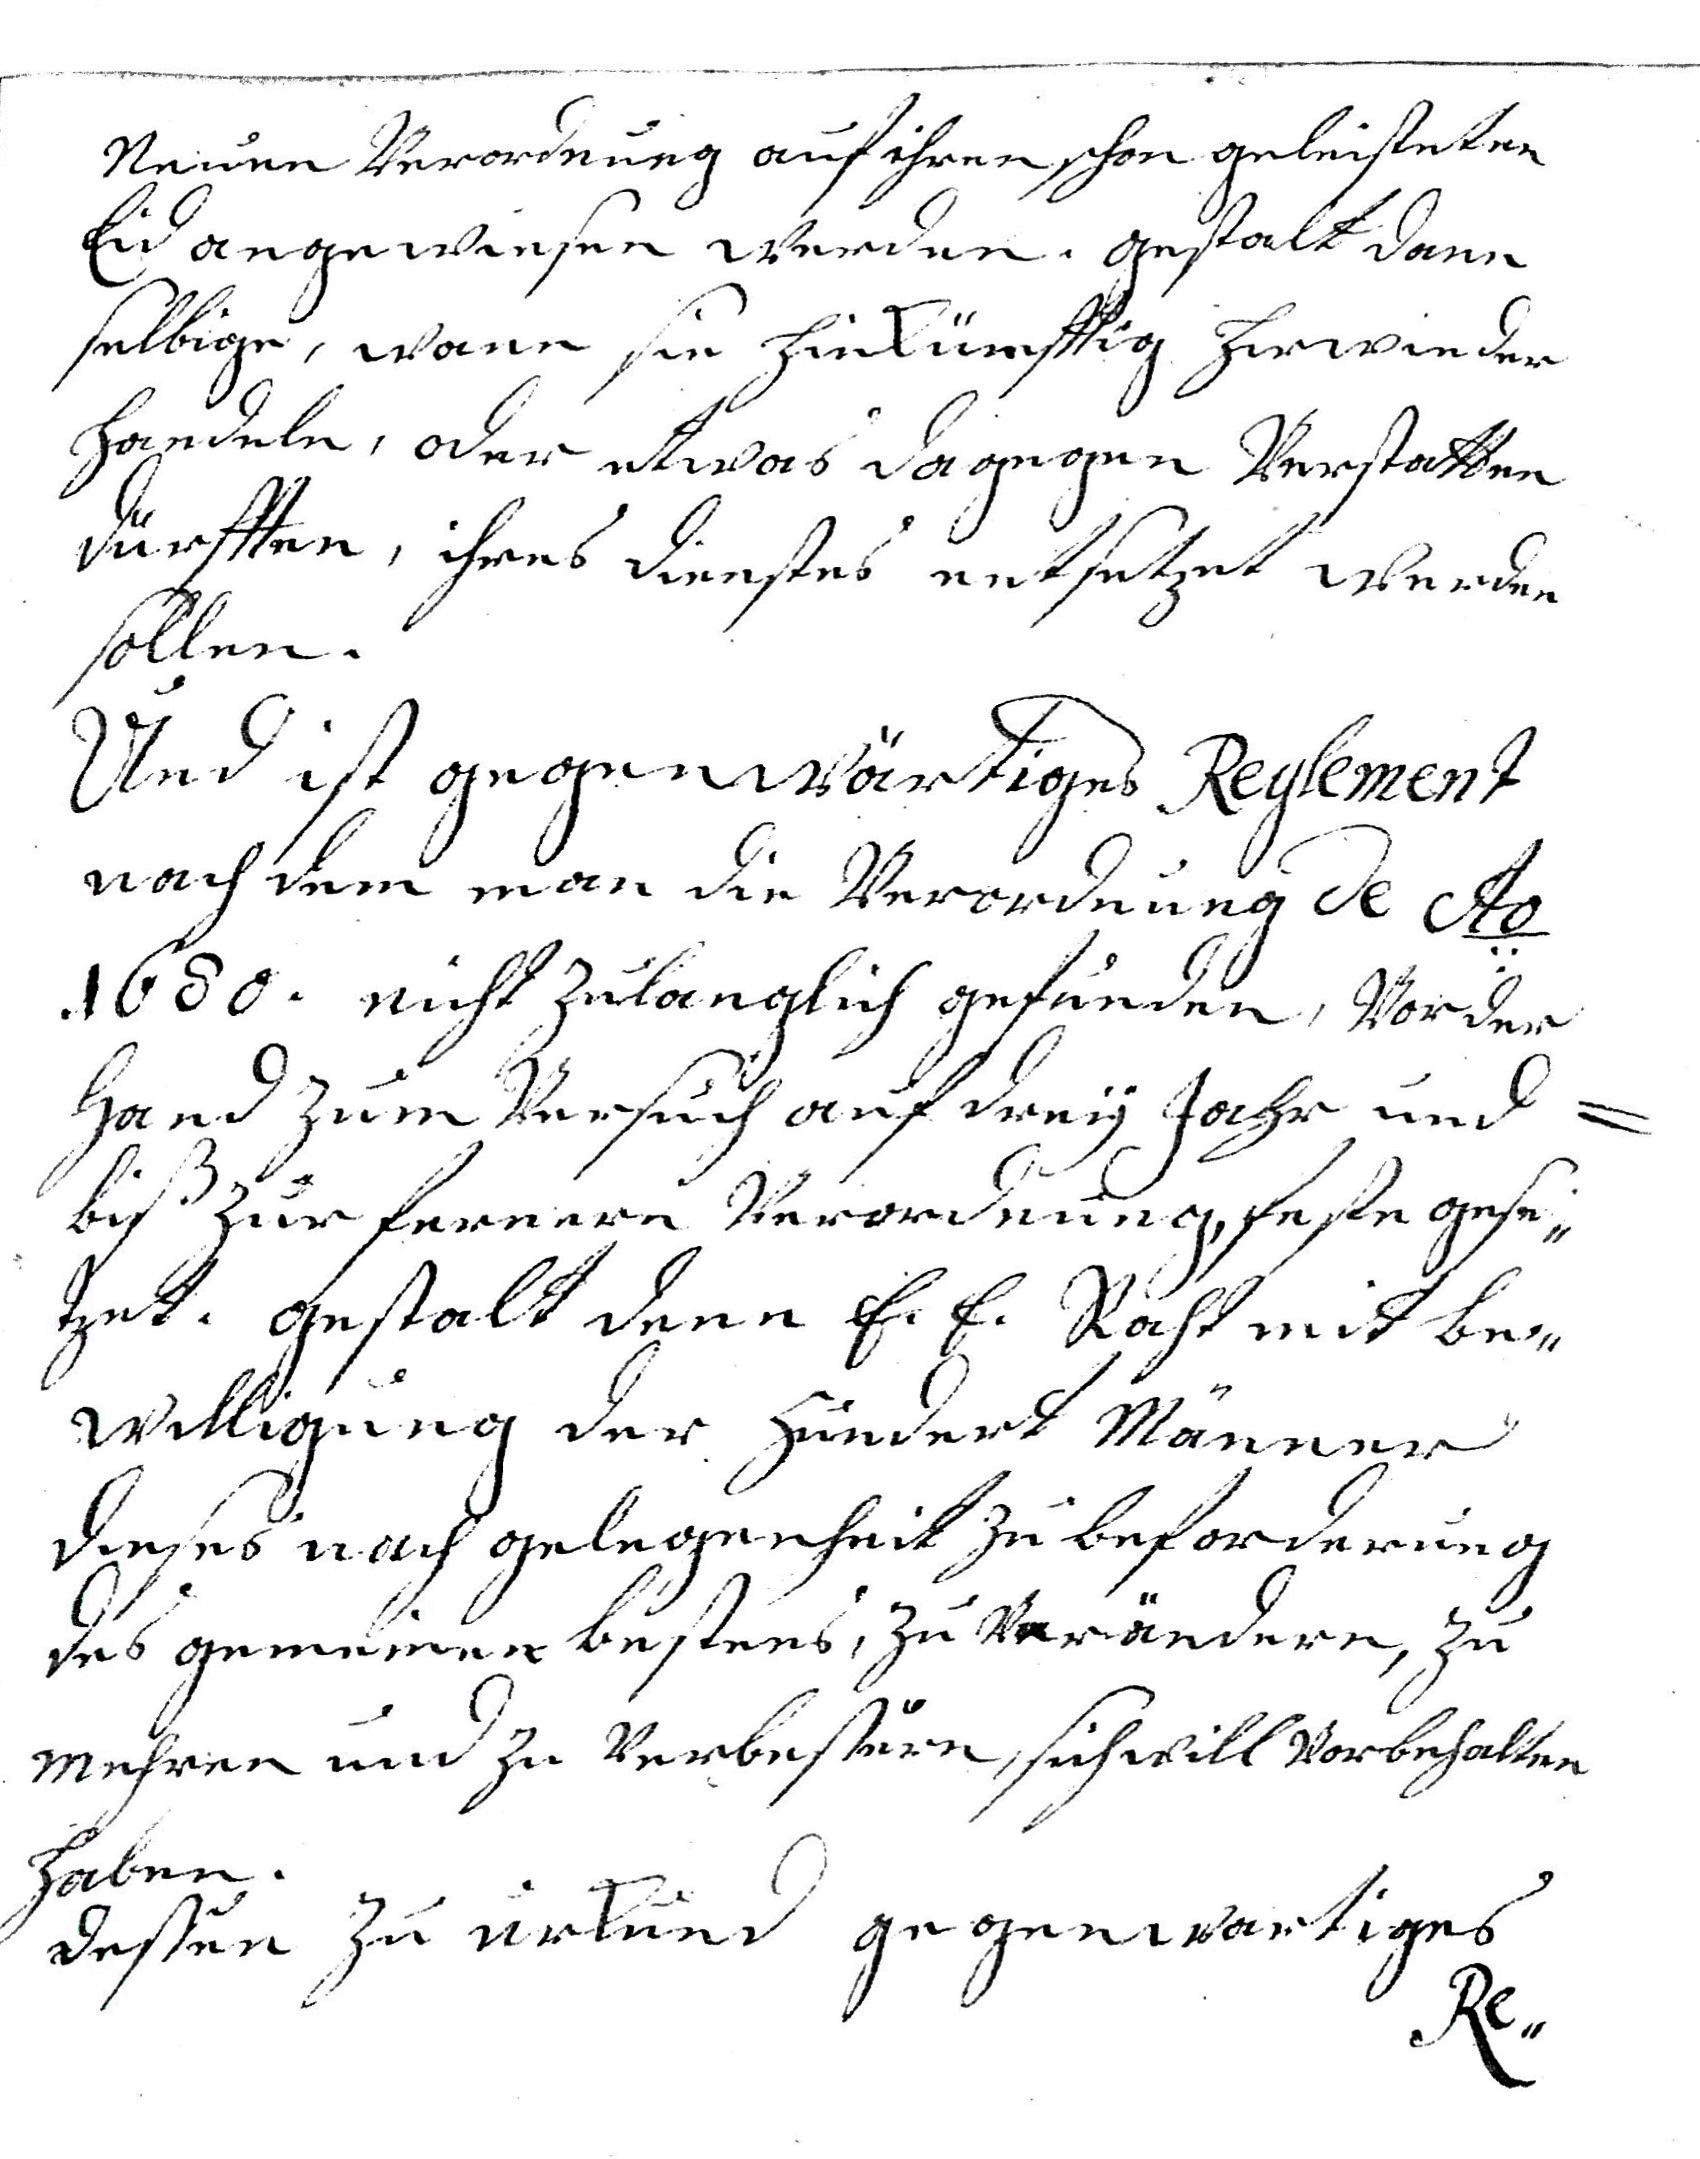 Neuen Verordnung auf ihren schon geleisteten
Eid angewiesen werden. gestalt dann
selbige, wann sie hinkünfftig hierwieder
handeln, oder etwas dagegen Verstatten
dürfften, ihres dienstes entsetzet werden
sollen.
Und ist gegenwärtiges Reglement
nach dem man die Verordnung de Ao
1680. nicht zulanglich gefunden, Vor der
Hand zum Versuch auf dreÿ Jahr und =
biß zur fernern Verordnung, feste gese„
tzet. gestalt denn E. E. Raht mit be„
willigung der Hundert Männer
dieses nach gelegenheit zu beforderung
des gemeinen bestens, zu Verändern, zu
mehren und zu Verbessern, sich will Vorbehalten
haben.
dessen zu urkund gegenwartiges
Re„